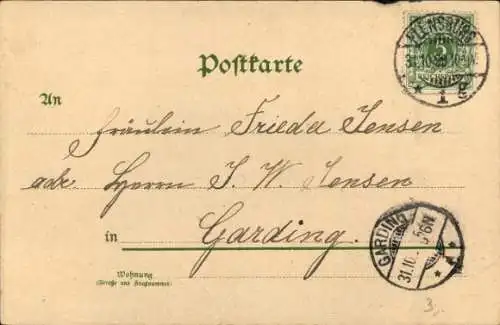 FLENSBURG
5
31.10.
* 1 g
Postkarte
An
Fräulein Frieda Jensen
adr. Herrn J. W. Jensen
in Garding.
GARDING
31.10.
5-6N
* *
Wohnung
(Straße und Hausnummer)
3,-